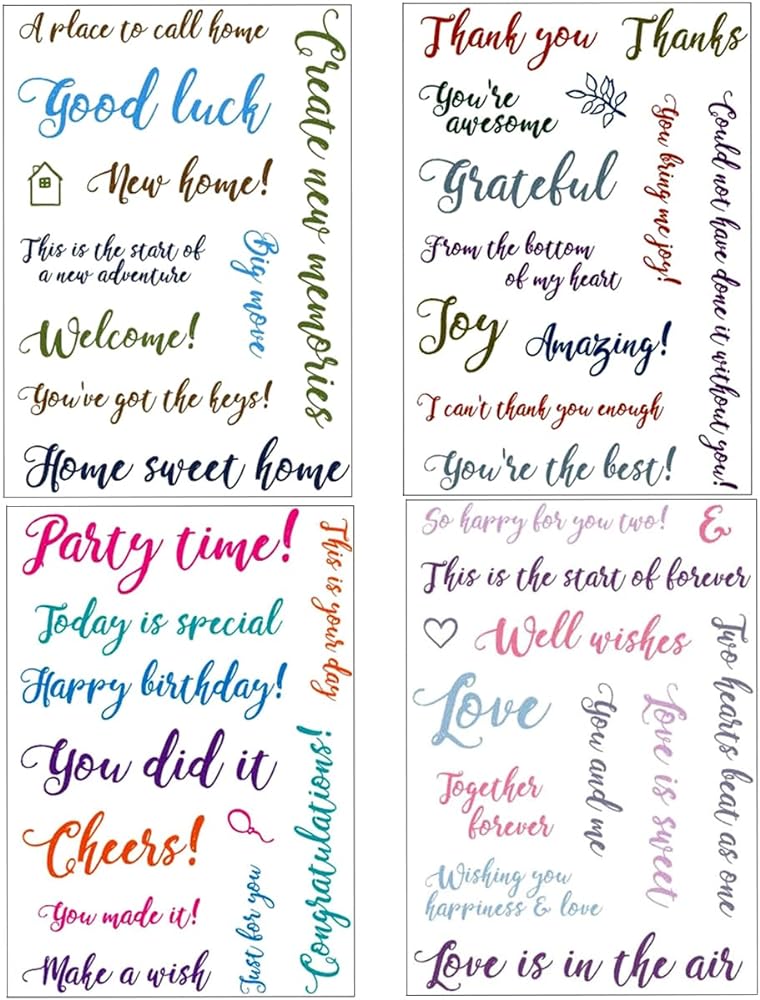 A place to call home
Good luck
New home!
This is the start of
a new adventure
Big move
Welcome!
You've got the keys!
Home sweet home
Create new memories
Thank you
Thanks
You're
awesome
Grateful
From the bottom
of my heart
Joy
Amazing!
I can't thank you enough
You're the best!
You bring me joy!
Could not have done it without you!
Party time!
Today is special
Happy birthday!
You did it
Cheers!
You made it!
Make a wish
Just for you
This is your day
Congratulations!
So happy for you two!
&
This is the start of forever
Well wishes
Love
Together
forever
Wishing you
happiness & love
You and me
Love is sweet
Two hearts beat as one
Love is in the air